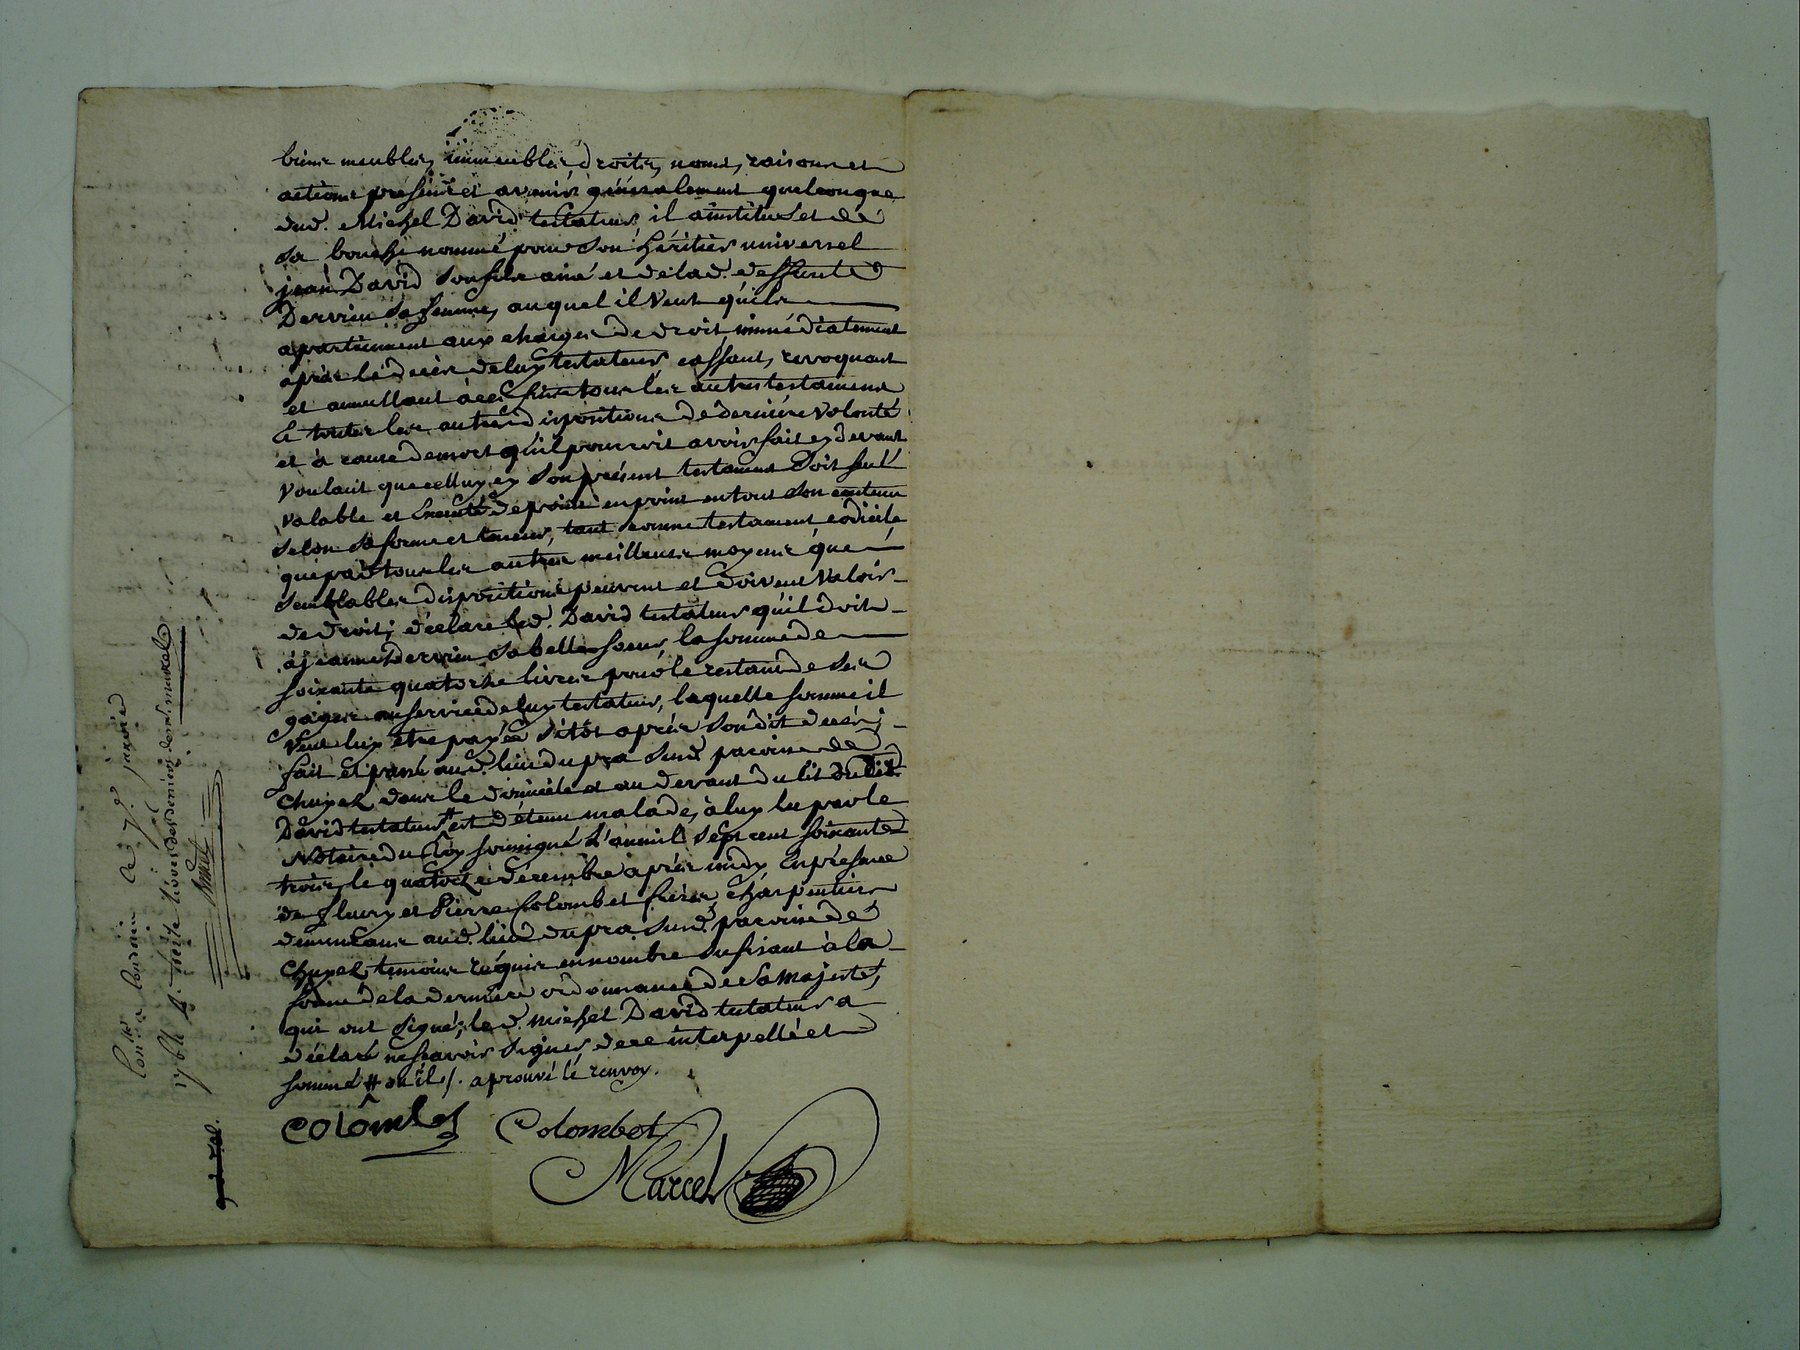 biens meubles, immeubles, droits, noms, raisons et
actions présents et avenir généralement quelconque
dud. Michel David testateur, il a institué et de
sa bouche nommé pour son héritier universel
jean David son fils ainé et de lad. deffunte
Dervieu sa femme, auquel il veut qu'ils
apartiennent aux charges de droit immédiatement
après le décès de luy testateur, cassant, revoquant
et annullant à ces fins tous les autres testamens
& toutes les autres dispositions de dernière volonté
et à cause de mort qu'il pourroit avoir fait cy devant
voulant que celluy cy son présent testament soit seul
valable et Executé de point en point en tout son contenu
selon sa forme et teneur, tant comme testament codicile
que par tous les autres meilleurs moyens que
semblables dispositions peuvent et doivent valoir
de droit; déclare led. David testateur qu'il doit
à jeanne Dervieu sa belle soeur, la somme de
soixante quatorze livres pour le restant de ses
gages au service de luy testateur, laquelle somme il
veut luy être payée sitôt après son dit décès;
fait et passé aud. lieu du pra susd. paroisse de
Chuyer dans le domicile et au devant du lit dudit
David testateur # est détenu malade, à luy lu par le
Notaire du Roy soussigné L'an mil sept cent soixante
trois, le quatorze décembre après midy, En présence
de fleury et Pierre Colombet frères, charpentiers
demeurans aud. lieu du pra susd. paroisse de
Chuyer temoins réquis en nombre sufisant à la
forme de la dernière ordonnance de Sa Majesté,
qui ont signé; led. Michel David testateur a
déclaré ne savoir signer de ce interpellé et
sommé # où il /. aprouvé le renvoy.
Colombet Colombet
Marcel
1764